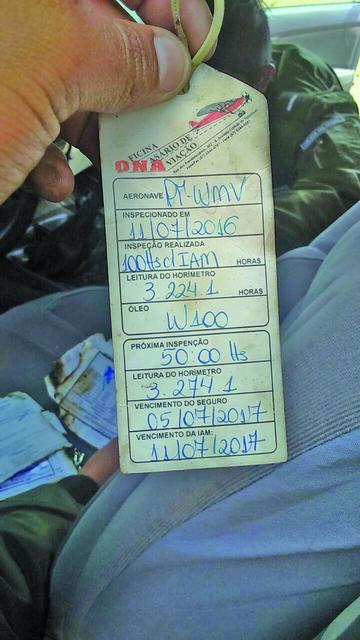 OFICINA
ONA SÁRIO DE
VIAÇÃO
AERONAVE PT-WMV
INSPECIONADO EM
11/07/2016
INSPEÇÃO REALIZADA
100Hs c/ IAM HORAS
LEITURA DO HORÍMETRO
3.224.1 HORAS
ÓLEO
W100
PRÓXIMA INSPEÇÃO
50:00 Hs
LEITURA DO HORÍMETRO
3.274.1
VENCIMENTO DO SEGURO
05/07/2017
VENCIMENTO DA IAM:
11/07/2017